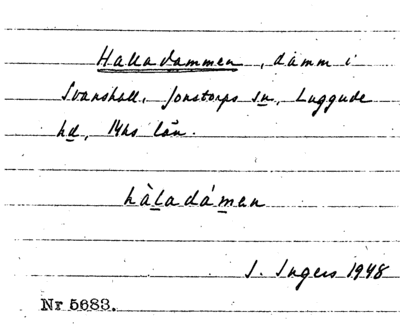 Halladammen, damm i
Svanshall, Jonstorps sn, Luggude
hd, Mhs län.
hàladámen
I. Ingers 1948
Nr 5683.